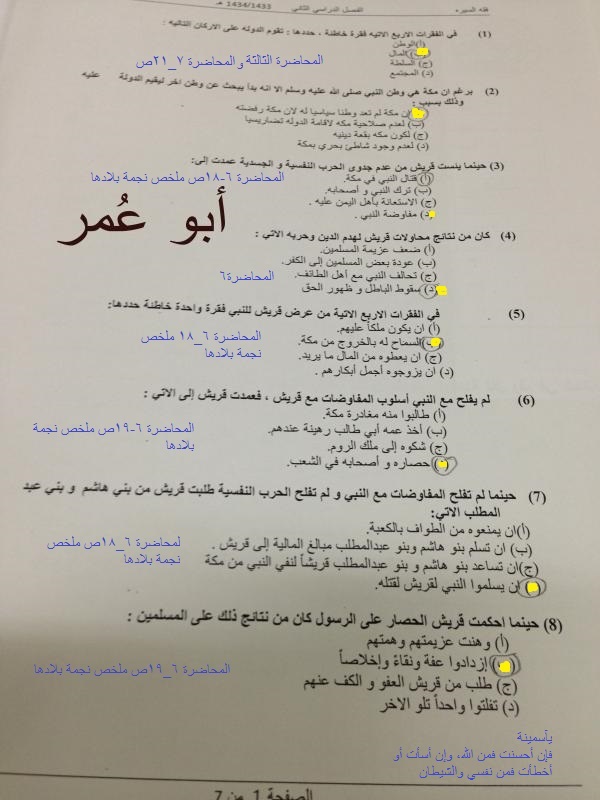 فقه السيره الفصل الدراسي الثاني 1434/1433 هـ
(1) في الفقرات الاربع الاتيه فقرة خاطئة ، حددها : تقوم الدوله على الاركان التاليه :
(أ)الوطن
(ب)المال
(ج) السلطة
(د) المجتمع
المحاضرة الثالثة و المحاضرة ٧_٢١ص
(2) برغم ان مكة هي وطن النبي صلى الله عليه وسلم الا انه بدأ يبحث عن وطن اخر ليقيم الدولة عليه
وذلك بسبب :
ان مكة لم تعد وطنا سياسيا له لان مكة رفضته
(ب) لعدم صلاحية مكه لاقامة الدوله تضاريسيا
(ج) لكون مكه بقعة دينيه
(د) لعدم وجود شاطئ بحري بمكة
(3) حينما يئست قريش من عدم جدوى الحرب النفسية و الجسدية عمدت إلى:
(أ) قتال النبي في مكة.
(ب) ترك النبي و أصحابه.
(ج) الاستعانة بأهل اليمن عليه .
(د) مفاوضة النبي .
المحاضرة ٦-١٨ص ملخص نجمة بلادها
أبو عُمر
(4) كان من نتائج محاولات قريش لهدم الدين وحربه الاتي :
(أ) ضعف عزيمة المسلمين.
(ب) عودة بعض المسلمين إلى الكفر.
(ج) تحالف النبي مع أهل الطائف.
(د) سقوط الباطل و ظهور الحق
المحاضرة٦
(5) في الفقرات الاربع الاتية من عرض قريش للنبي فقرة واحدة خاطئة حددها:
(أ) ان يكون ملكاً عليهم.
(ب) السماح له بالخروج من مكة.
(ج) ان يعطوه من المال ما يريد.
(د) ان يزوجوه أجمل أبكارهم .
المحاضرة ٦_١٨ ملخص
نجمة بلادها
(6) لم يفلح مع النبي أسلوب المفاوضات مع قريش ، فعمدت قريش إلى الاتي :
(أ) طالبوا منه مغادرة مكة.
(ب) أخذ عمه أبي طالب رهينة عندهم.
(ج) شكوه إلى ملك الروم.
(د) حصاره و أصحابه في الشعب.
المحاضرة ٦-١٩ص ملخص نجمة
بلادها
(7) حينما لم تفلح المفاوضات مع النبي و لم تفلح الحرب النفسية طلبت قريش من بني هاشم و بني عبد
المطلب الاتي:
(أ)ان يمنعوه من الطواف بالكعبة.
(ب) ان تسلم بنو هاشم وبنو عبدالمطلب مبالغ المالية إلى قريش .
(ج)ان تساعد بنو هاشم و بنو عبدالمطلب قريشاً لنفي النبي من مكة
ان يسلموا النبي لقريش لقتله.
لمحاضرة ٦_١٨ص ملخص
نجمة بلادها
(8) حينما احكمت قريش الحصار على الرسول كان من نتائج ذلك على المسلمين :
(أ) وهنت عزيمتهم وهمتهم
(ب) إزدادوا عفة ونقاءً وإخلاصاً
(ج) طلب من قريش العفو و الكف عنهم
(د) تفلتوا واحداً تلو الاخر
المحاضرة ٦_١٩ص ملخص نجمة بلادها
يآسمينة
فإن أحسنت فمن الله، وإن أسأت أو
أخطأت فمن نفسي والشيطان
الصفحة 1 من 7